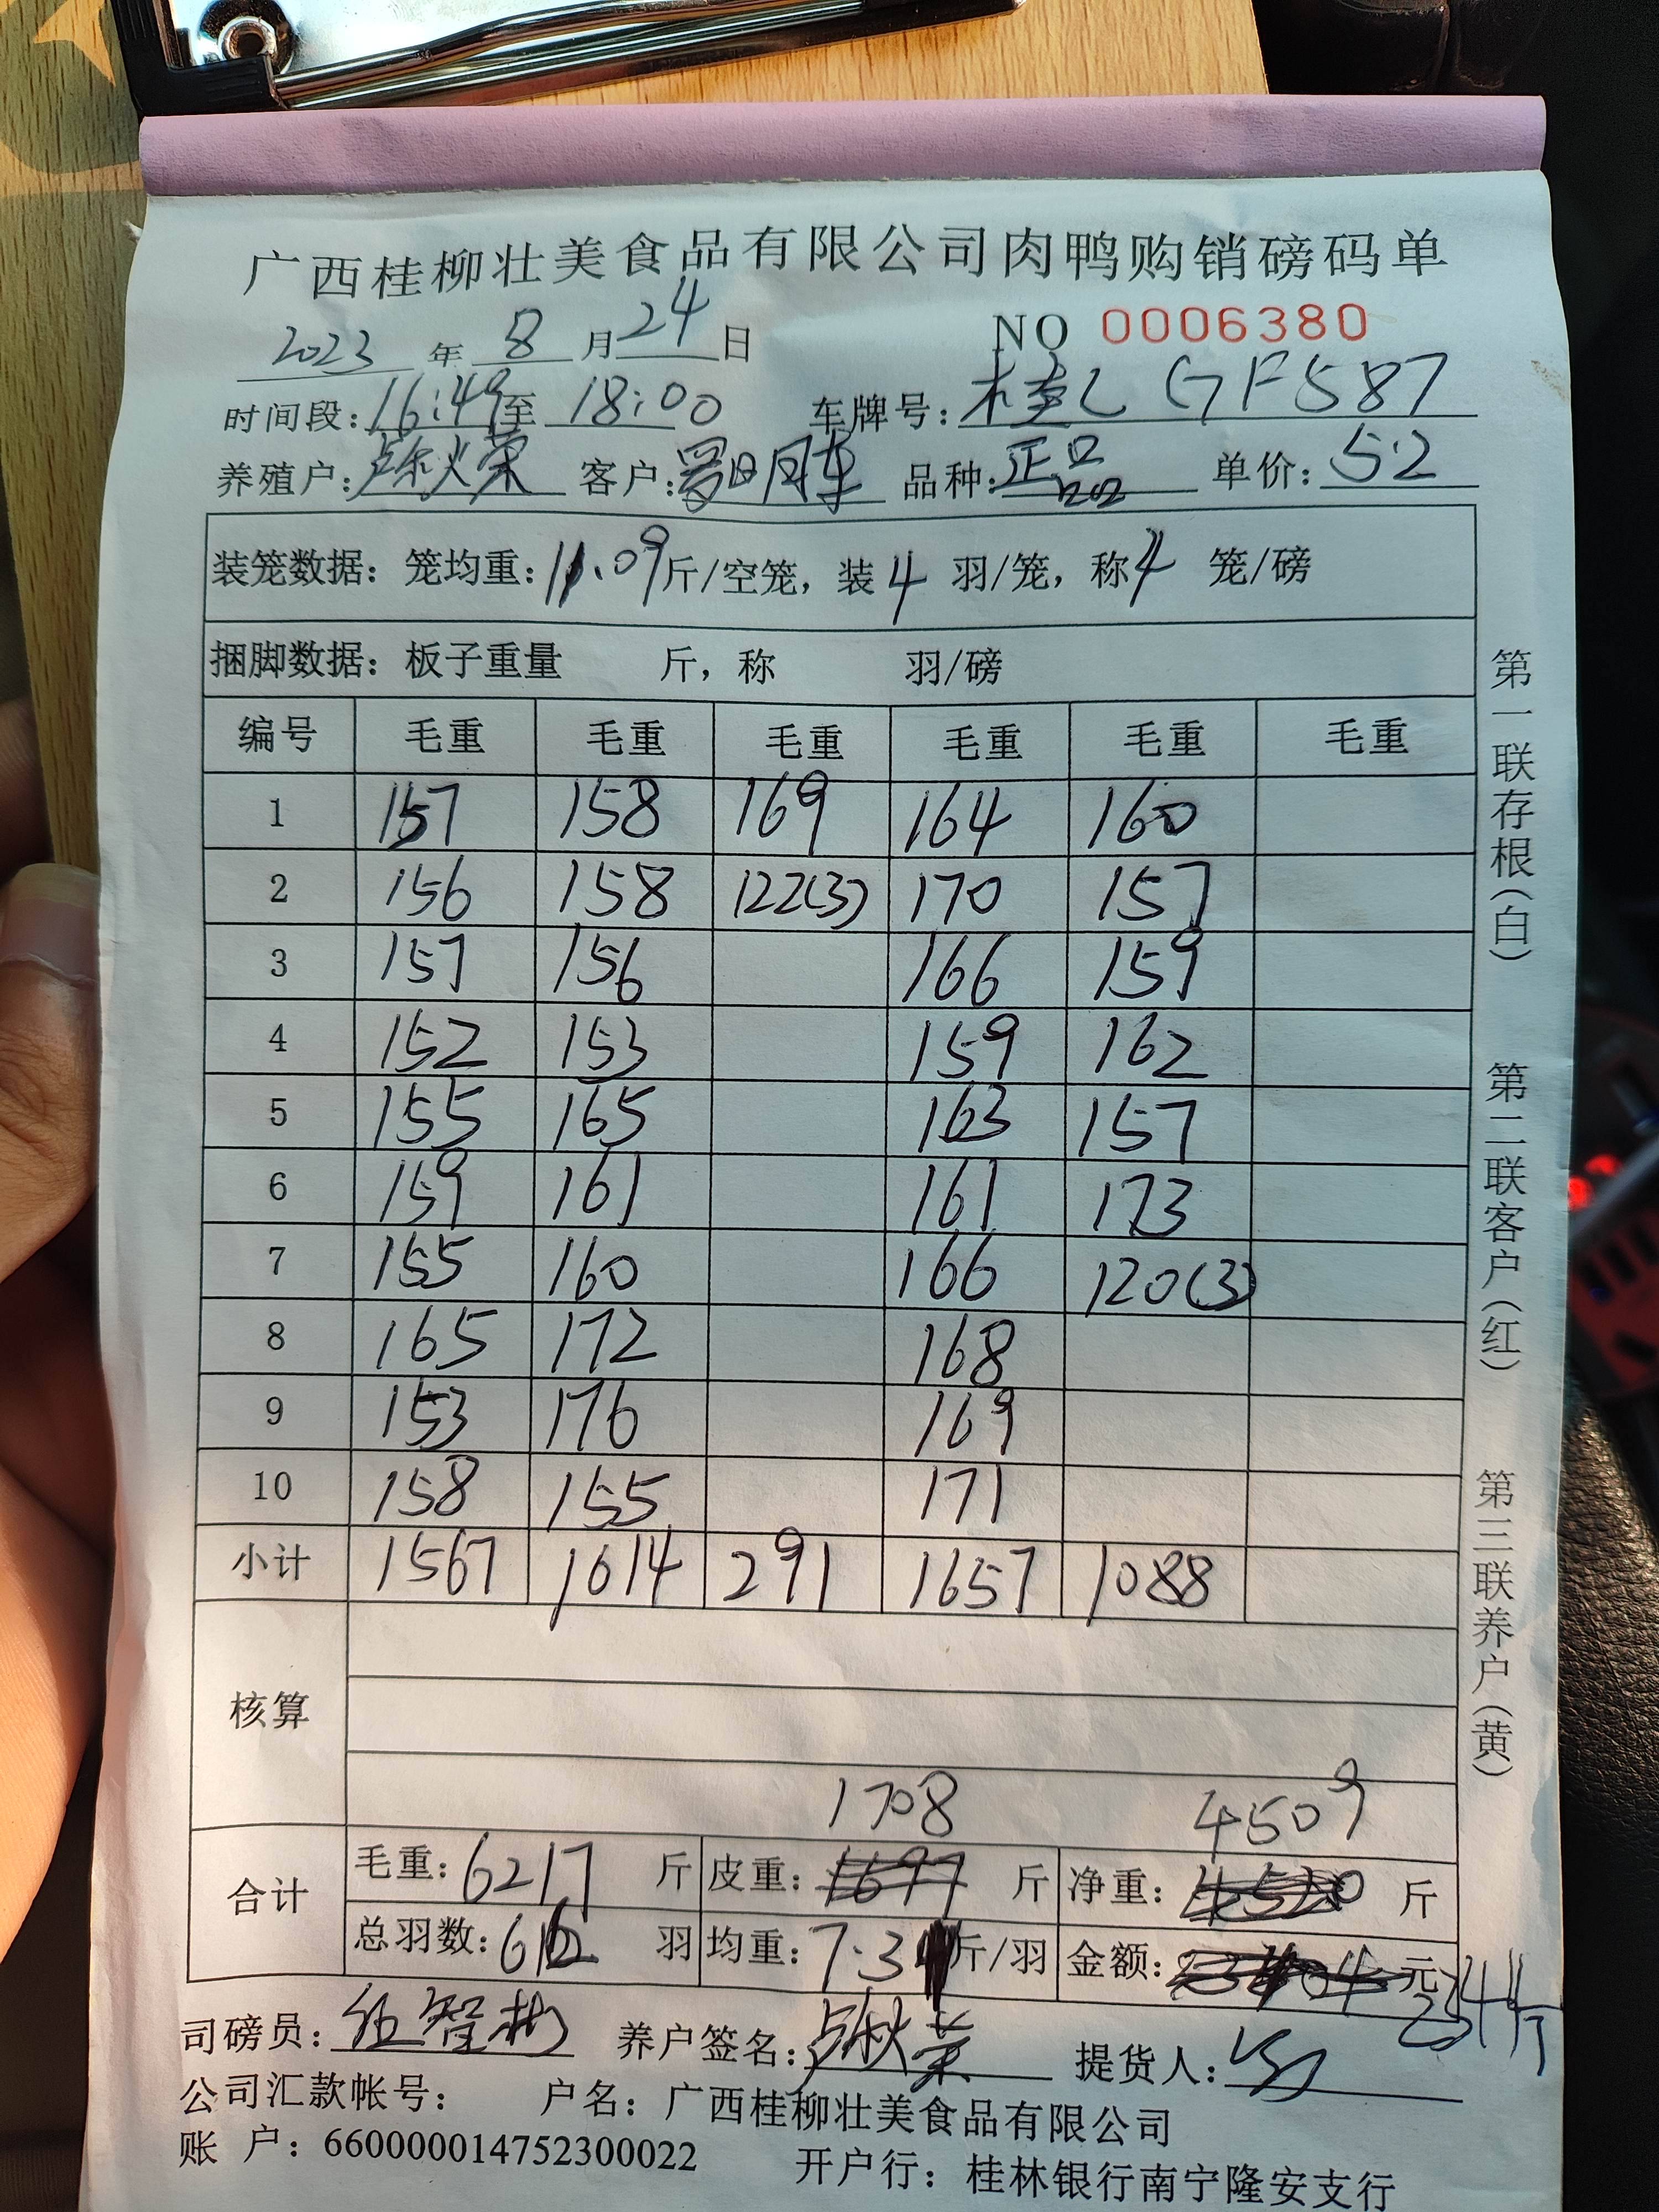 广西桂柳壮美食品有限公司肉鸭购销磅码单
2023 年 8 月 24 日 NO 0006380
时间段: 16:49 至 18:00 车牌号: 桂 GF587
养殖户: 荣 客户: 品种: 正品 单价: 5.2
装笼数据: 笼均重: 11.09 斤/空笼, 装 4 羽/笼, 称 4 笼/磅
捆脚数据: 板子重量 斤, 称 羽/磅
编号 毛重 毛重 毛重 毛重 毛重 毛重
1 157 158 169 164 160
2 156 158 122(3) 170 157
3 157 156 166 159
4 152 153 159 162
5 155 165 163 157
6 159 161 161 173
7 155 160 166 120(3)
8 165 172 168
9 153 176 169
10 158 155 171
小计 1567 1614 291 1657 1088
核算
1708 4509
合计 毛重: 6217 斤 皮重: 斤 净重: 斤
总羽数: 羽 均重: 7.3 斤/羽 金额: 元
司磅员: 养户签名: 提货人:
公司汇款帐号: 户名: 广西桂柳壮美食品有限公司
账 户: 660000014752300022 开户行: 桂林银行南宁隆安支行
第一联存根(白) 第二联客户(红) 第三联养户(黄)